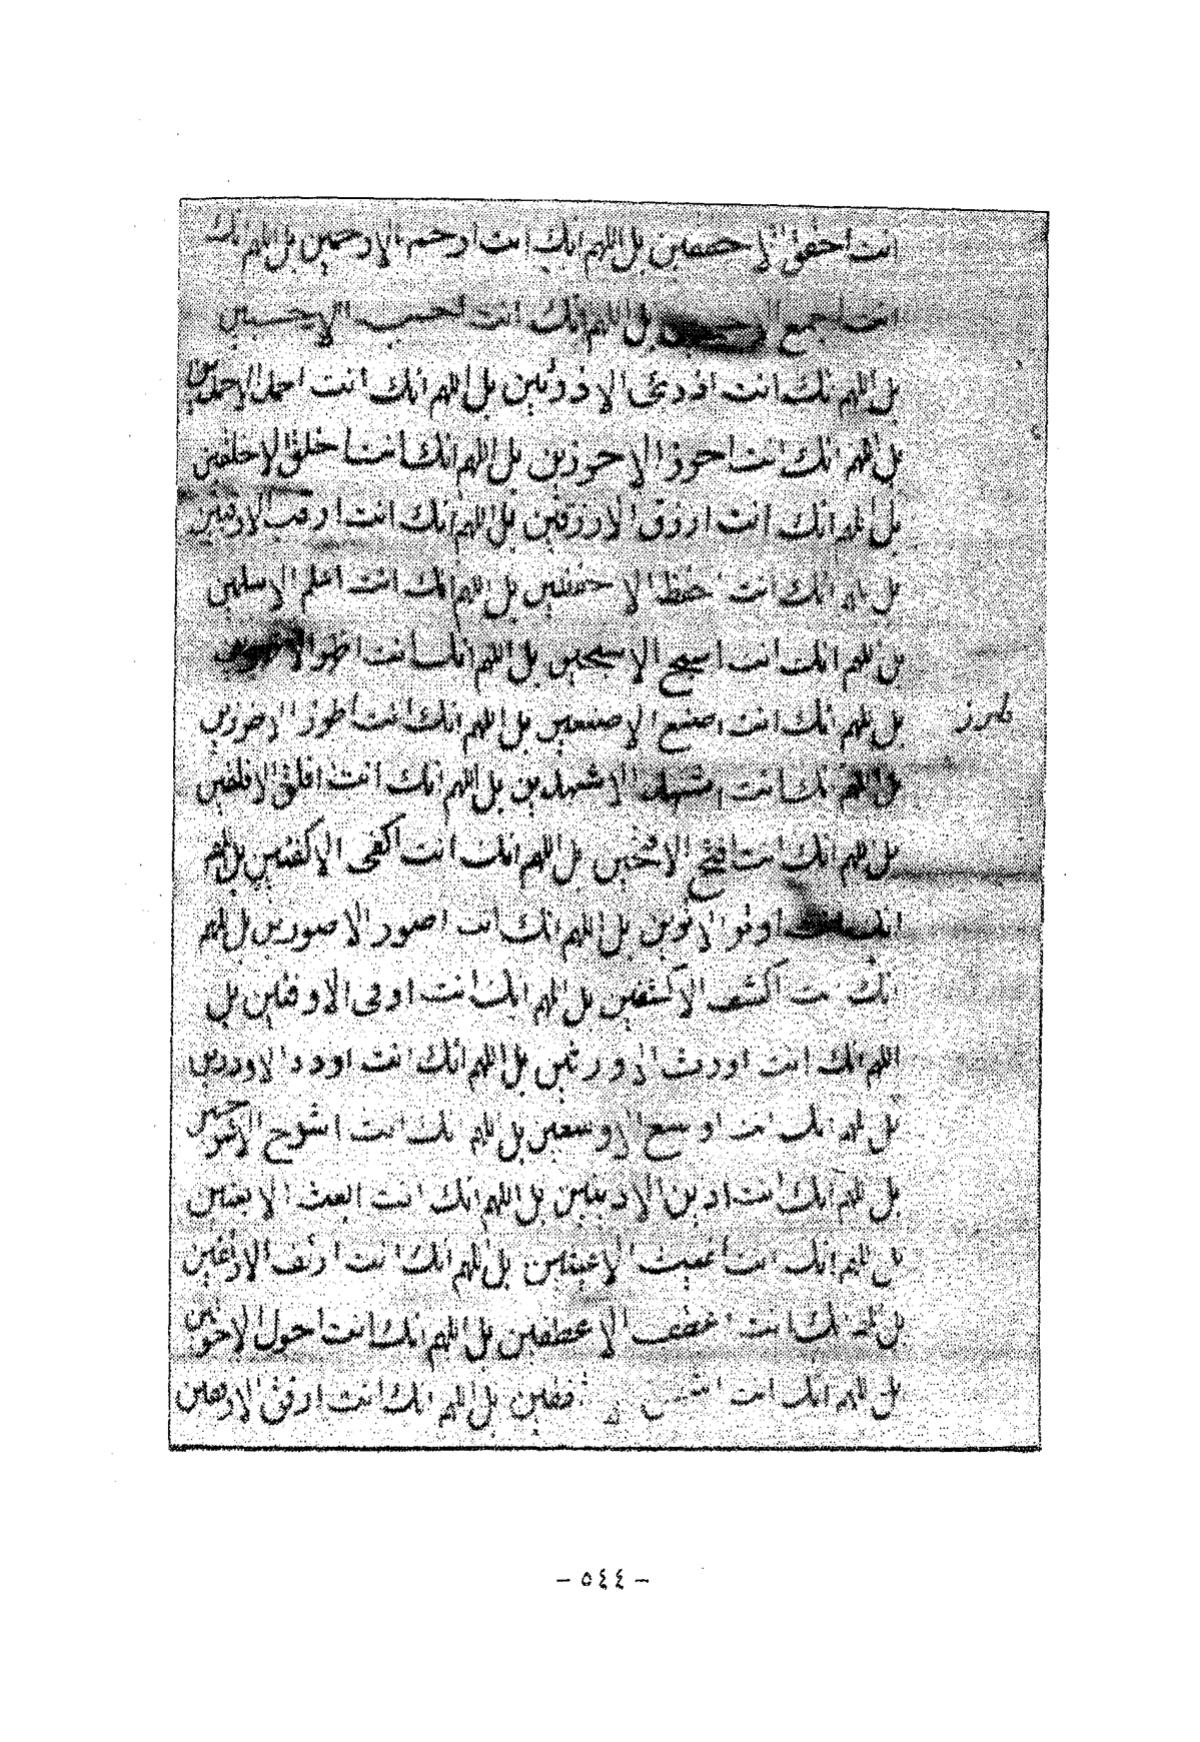 انت احقق الاحققين بل اللهم انك انت ارحم الارحمين بل اللهم انك
انت اجمع بل اللهم انك انت احسب الاحسبين
بل اللهم انك انت الاذرئين بل اللهم انك انت احمد الاحمدين
بل اللهم انك انت احوز الاحوزين بل اللهم انك انت اخلق الاخلقين
بل اللهم انك انت ارزق الارزقين بل اللهم انك انت ارقب الارقبين
بل اللهم انك انت احفظ الاحفظين بل اللهم انك انت اسلم الاسلمين
بل اللهم انك انت اسبح الاسبحين بل اللهم انك انت
بل اللهم انك انت اصنع الاصنعين بل اللهم انك انت اطرز الاطرزين
طرز
بل اللهم انك انت اشهد الاشهدين بل اللهم انك انت افلق الافلقين
بل اللهم انك انت افتح الافتحين بل اللهم انك انت اكفى الاكفيين بل اللهم
انك انت بل اللهم انك انت اصور الاصورين بل اللهم
انك انت اكشف الاكشفين بل اللهم انك انت اوفى الاوفيين بل
اللهم انك انت اورث الاورثين بل اللهم انك انت اودد الاوددين
بل اللهم انك انت اوسع الاوسعين بل اللهم انك انت
بل اللهم انك انت ادين الادينين بل اللهم انك انت ابعث الابعثين
بل اللهم انك انت اغيث الاغيثين بل اللهم انك انت ارئف الارئفين
بل اللهم انك انت اعطف الاعطفين بل اللهم انك انت احول الاحولين
بل اللهم انك انت بل اللهم انك انت ارفق الارفقين
- ٥٤٤ -